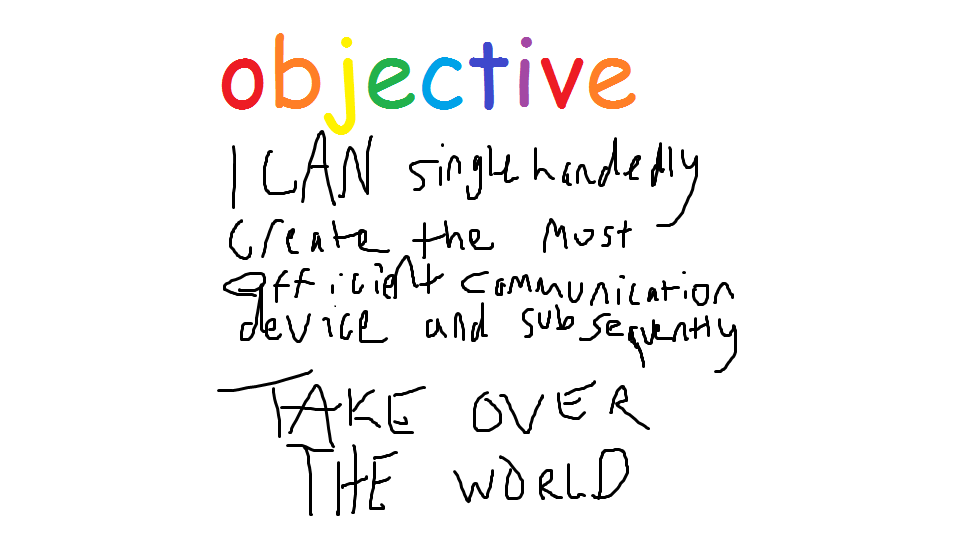 objective
I CAN singlehandedly
create the most
efficient communication
device and subsequently
TAKE OVER
THE WORLD